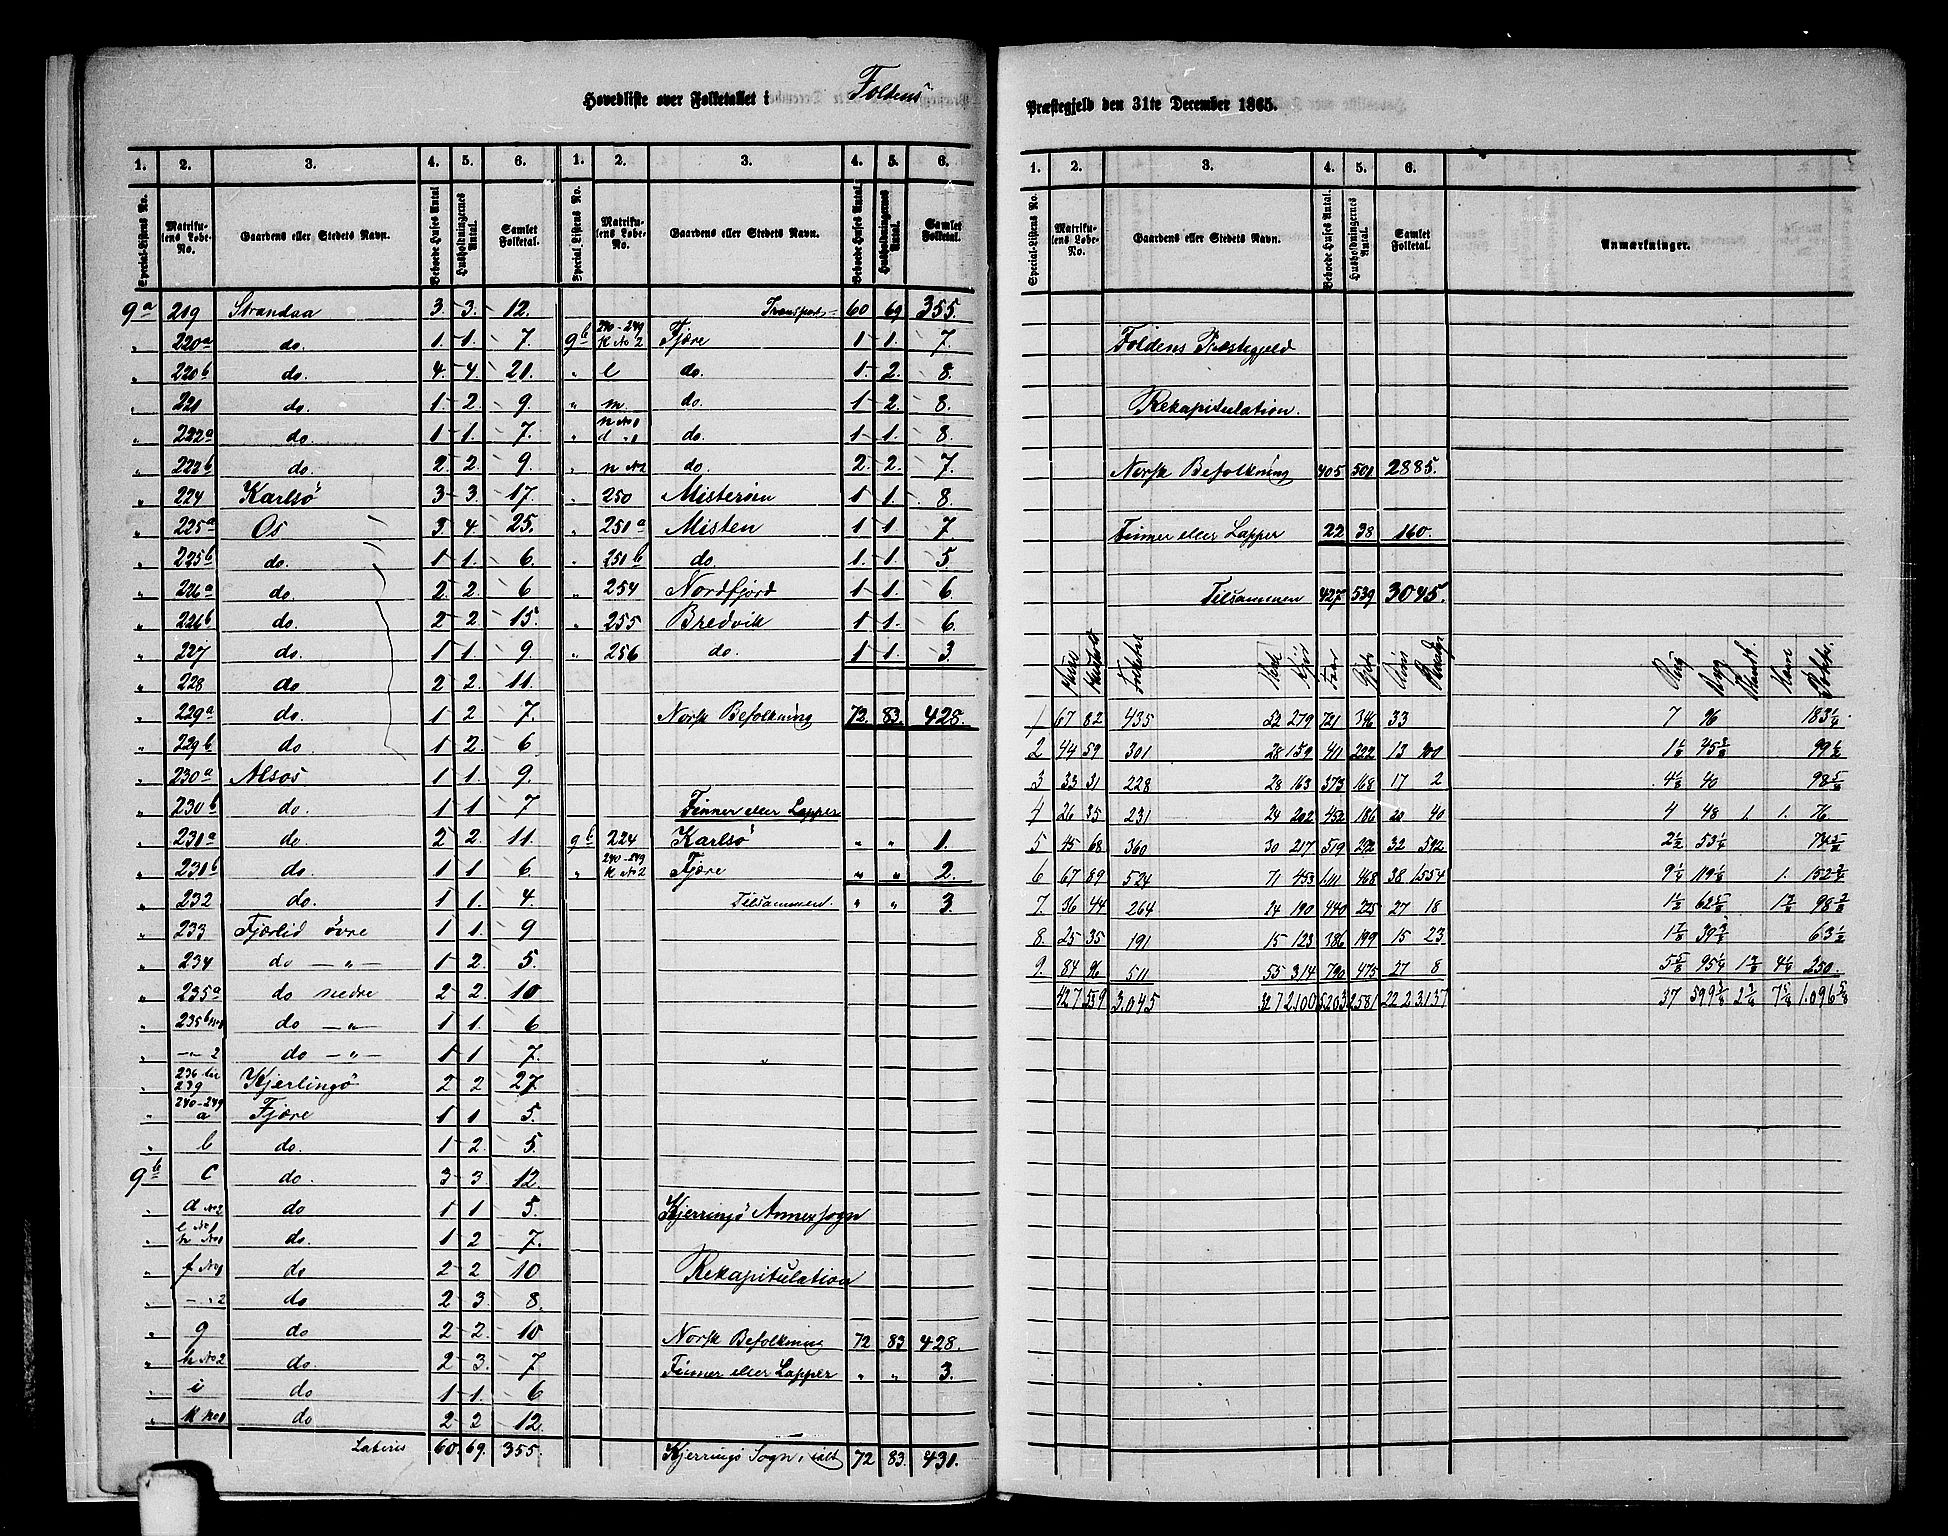 Hovedliste over Folketallet i Foldens
Præstegjeld den 31te December 1865.
1. 2. 3. 4. 5. 6. 1. 2. 3. 4. 5. 6.
Special-Listens No. Matrikulens Løbe-No. Gaardens eller Stedets Navn. Beboede Huses Antal Husholdningernes Antal. Samlet Folketal. Special-Listens No. Matrikulens Løbe-No. Gaardens eller Stedets Navn. Beboede Huses Antal. Husholdningernes Antal. Samlet Folketal.
9a 219 Strandaa 3 3. 12.
" 220a do. 1 1. 7.
" 220b do. 4. 4. 21.
" 221 do. 1 2. 9.
" 222a do. 1 1. 7.
" 222b do. 2 2. 9.
" 224 Karlsö 3 3. 17.
" 225a Os 3. 4. 25.
" 225b do. 1 1. 6.
" 226a do. 2 2. 6
" 226b do. 2 2. 15.
" 227 do. 1 1. 9.
" 228 do 2 2. 11.
" 229a do. 1 2 7.
" 229b do 1 2. 6
" 230a Alsos 1 1. 9.
" 230b do. 1 1. 7
" 231a do. 2 2. 11.
" 231b do. 1 1 6.
" 232 do. 1 1. 4.
" 233 Fjærlid övre 1 1. 9
" 234 do — " — 1 2. 5.
" 235a do nedre 2 2. 10
" 235b No1 do — " — 1 1. 6
" — " 2 do — " — 1 1 7.
" 236 til 239 Kjerlingö 2 2 27.
" 240-249 a Fjære 1 1. 5.
" b do 1 2. 5
9b c do. 3 3 12.
" d No2 do 1 1. 5.
" e No1 h No1 do. 1 2 7.
" f No1 do 2 2 10
" — " 2 do 2 3. 8.
" g do 2 2. 10
" h No2 do. 2 3. 7
" i do 1 1. 6
" k No1 do 2 2 12.
Lateris 60. 69. 355.
Transport 60 69 355.
9b 240-249 k No2 Fjære 1 1. 7.
" l do. 1 2. 8.
" m. do. 1 2. 8.
" n No1 d " 1 do. 1 1. 8.
" n No2 do. 2. 2. 7.
" 250 Misterøen 1 1. 8
" 251a Misten 1 1. 7
" 251b do. 1. 1. 5
" 254 Nordfjord 1 1. 6
" 255 Bredvik 1 1. 6.
" 256 do. 1 1. 3.
Norsk Befolkning 72. 83. 428.
Finner eller Lapper
9b 224 Karlsö " " 1.
" 240-249 k No2 Fjære " " 2.
Tilsammen. " " 3.
Kjerringö Annexsogn
Rekapitulation
Norsk Befolkning 72 83 428.
Finner eller Lapper " " 3.
Kjerringö Sogn, ialt 72 83. 431.
1. 2. 3. 4. 5. 6.
Special-Listens No. Matrikulens Løbe-No. Gaardens eller Stedets Navn. Beboede Huses Antal. Husholdningernes Antal. Samlet Folketal. Anmærkninger.
Foldens Præstegjeld
Rekapitulation.
Norsk Befolkning 405 501 2885.
Finner eller Lapper 22 38 160.
Tilsammen 427 539 3045.
Huse Hushold Folketal Heste Kjör Faar Gjeder Sviin Rensdyr Rug Byg Blandk. Havre Poteter.
1 67 82 435 52 279 721 346 33 7 96 183 1/4.
2 44 59 301 28 159 411 222 13 900 1 1/8 45 3/8 99 1/2
3 33 31 228 28 163 373 168 17 2 4 1/8 40 98 5/8
4 26 35 231 24 202 452 186 20 40 4 48 1. 1. 76
5 45 68 360 30 217 519 292 32 592 2 1/2 53 1/4
6 67 89 524 71 453 1111 468 38 1554 9 1/4 119 1/8 1. 152 3/4
7. 36 44 264 24 190 440 225 27 18 1 1/8 62 5/8 1 3/8 98 3/8
8. 25 35 191 15 123 386 199 15 23 1 7/8 39 3/8 63 1/2
9. 84 96 511 55 314 790 475 27 8 5 5/8 95 1/4 1 3/8 4 1/4 250.
427 539 3.045 327 2100 5203 2581 222 3137 37 599 3/8 2 3/8 7 5/8 1.096 5/8